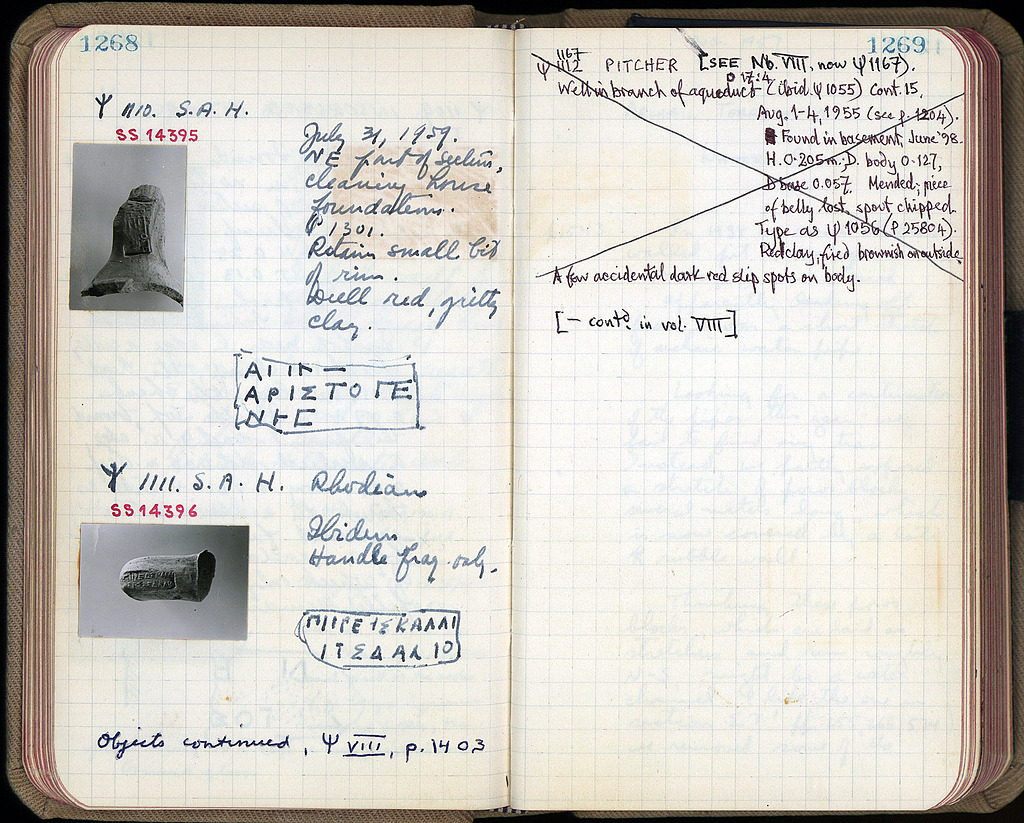 1268
Ψ 1110. S.A.H.
SS 14395
July 31, 1959.
NE part of section,
cleaning house
foundations.
P 1301.
Retain small bit
of rim.
Dull red, gritty
clay.
ΑΡΙΣΤΟΓΕ
Ψ 1111. S.A.H. Rhodian
SS 14396
Ibidem
Handle frag. only.
ΙΤΣΔΑΛΙΟ
Objects continued, Ψ VIII, p. 1403
1269
1167
Ψ 1112 PITCHER [SEE Nb. VIII, now Ψ 1167).
p 17:4
Well in branch of aqueduct (ibid. Ψ 1055) Cont. 15.
Aug. 1-4, 1955 (see p. 1204).
Found in basement, June '98.
H. 0.205m; D. body 0.127,
D base 0.057. Mended; piece
of belly lost, spout chipped.
Type as Ψ 1056 (P 25804).
Red clay, fired brownish on outside.
A few accidental dark red slip spots on body.
[— contd. in vol. VIII]